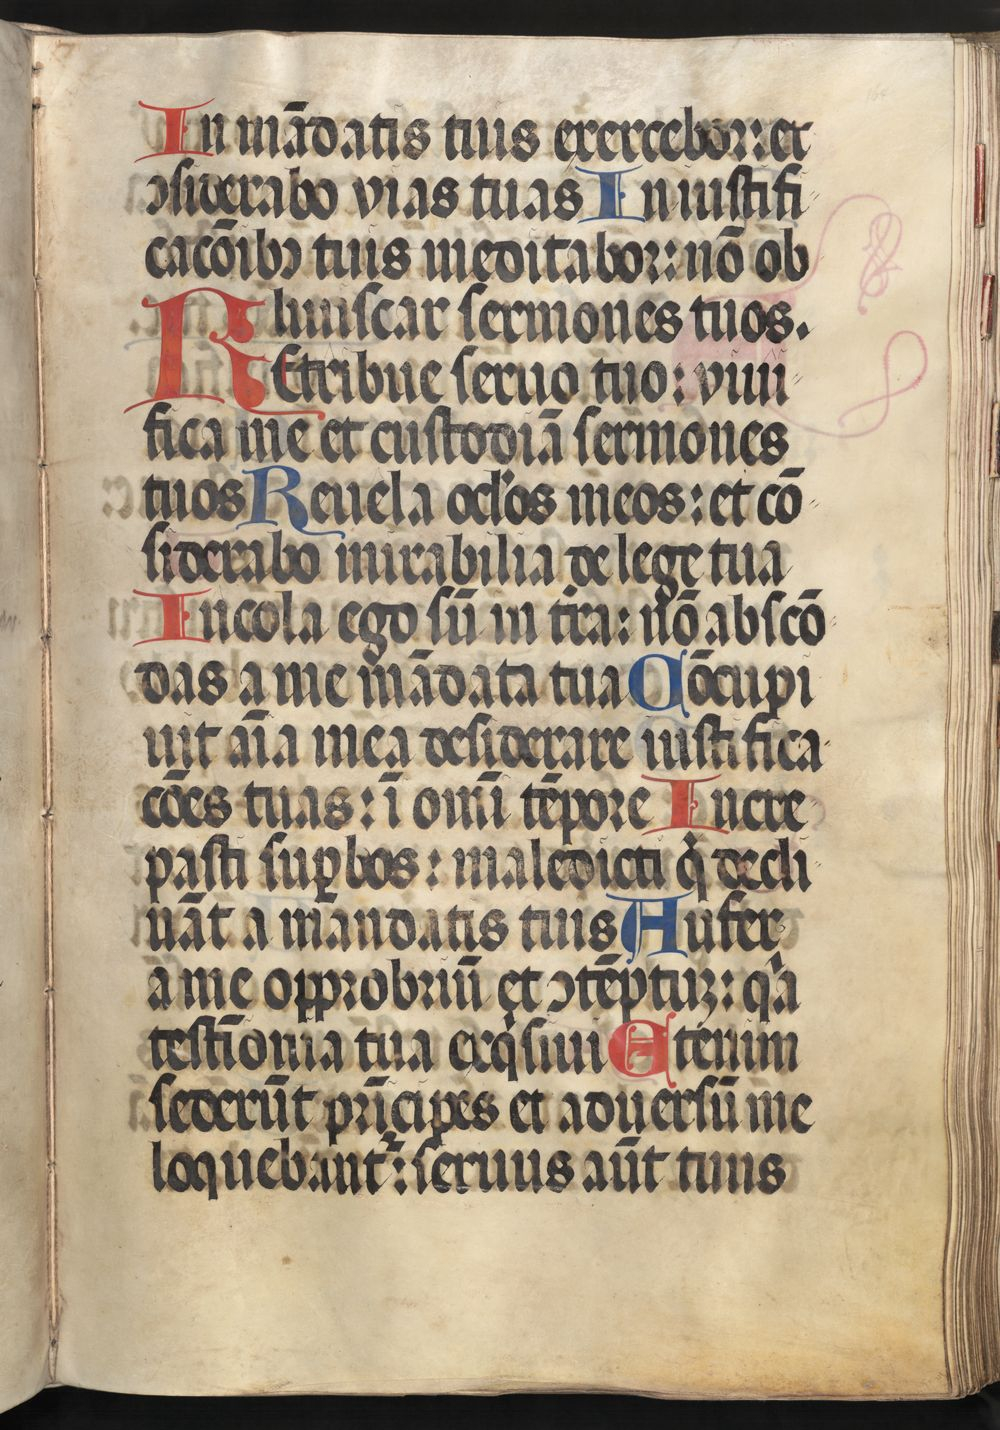 In mādatis tuis exercebor: et
ↄsiderabo vias tuas In iustifi
cacōibↄ tuis meditabor: nō ob
liuiscar sermones tuos.
REtribue seruo tuo: viui
fica me et custodiā sermones
tuos Reuela oclo̓s meos: et cō
siderabo mirabilia de lege tua
Incola ego sū in tr̄a: nō abscō
das a me mādata tua Cōcupi
uit aīa mea desiderare iustifica
cōes tuas: ī omī tēpore Incre
pasti suꝑbos: maledicti qͥ decli
nāt a mādatis tuis Aufer
a me opprobriū et ↄtēptuꝫ: qᷓa
testīonia tua exqͥsiui Etenim
sederūt prīcipes et aduersū me
loquebantᷣ: seruus aūt tuus